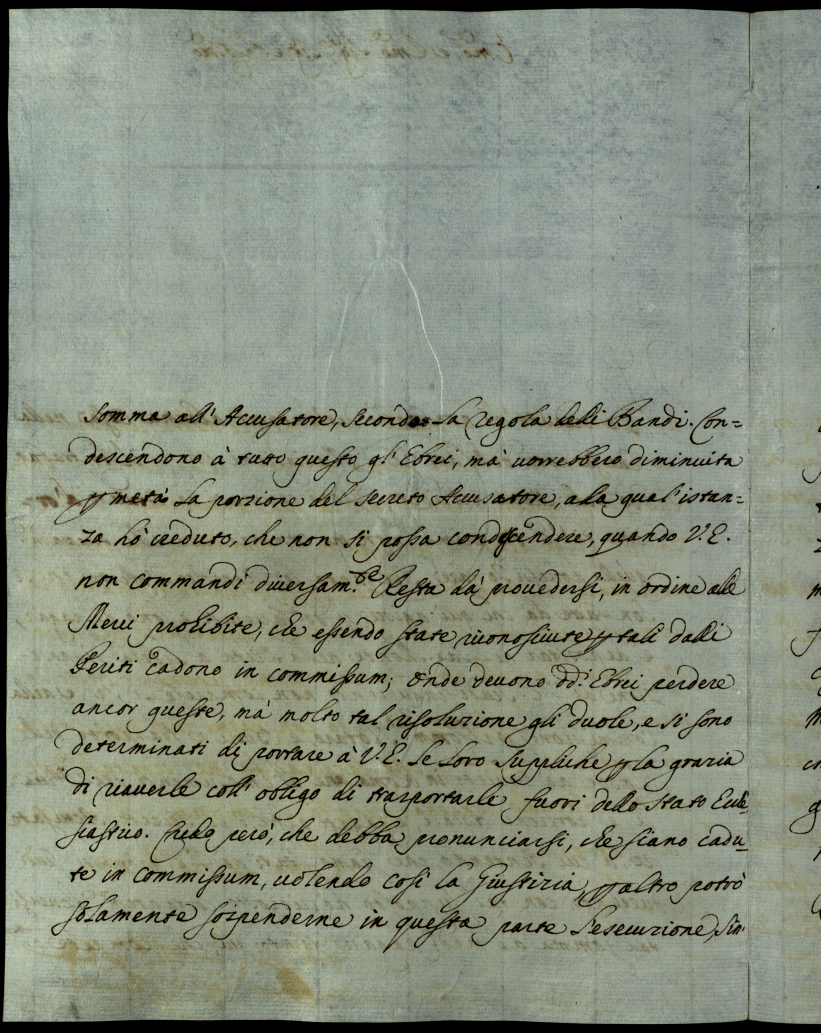 somma all' Accusatore, secondo la regola delli Bandi. Con=
descendono à tutto questo gl' Ebrei, mà vorrebbero diminuita
p metà la porzione del secreto Accusatore, alla qual' istan=
za hò creduto, che non si possa condescendere, quando V. E.
non commandi diversam.te Resta dà provedersi, in ordine alle
Merci proibite, che essendo state riconosciute p tali dalli
Periti cadono in commissum; onde devono dd.i Ebrei perdere
ancor queste, mà molto tal risoluzione gli duole, e si sono
determinati di portare à V. E. le loro Suppliche p la grazia
di riaverle coll' obligo di trasportarle fuori dello Stato Eccle
siastico. Credo però, che debba pronunciarsi, che siano cadu=
te in commissum, volendo così la Giustizia, p altro potrò
solamente sospenderne in questa parte l'esecuzione, sin